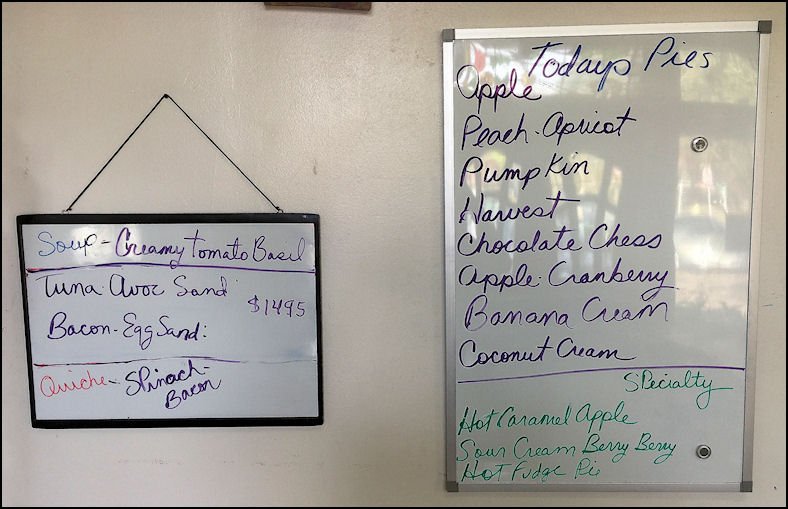 Soup - Creamy Tomato Basil
Tuna. Avoc Sand
$1495
Bacon - Egg Sand:
Quiche - Spinach -
Bacon
Todays Pies
Apple
Peach - Apricot
Pumpkin
Harvest
Chocolate Chess
Apple - Cranberry
Banana Cream
Coconut Cream
Specialty
Hot Caramel Apple
Sour Cream Berry Berry
Hot Fudge Pie